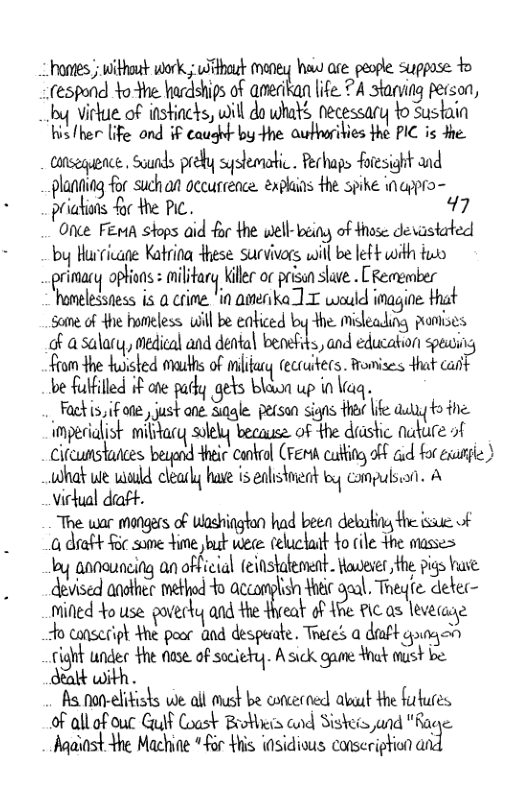 homes; without work; without money how are people suppose to
respond to the hardships of amerikan life? A starving person,
by virtue of instincts, will do what's necessary to sustain
his/her life and if caught by the authorities the PIC is the
consequence. Sounds pretty systematic. Perhaps foresight and
planning for such an occurrence explains the spike in appro-
priations for the PIC.
47
Once FEMA stops aid for the well-being of those devastated
by Hurricane Katrina these survivors will be left with two
primary options: military killer or prison slave. [Remember
homelessness is a crime in amerika] I would imagine that
some of the homeless will be enticed by the misleading promises
of a salary, medical and dental benefits, and education spewing
from the twisted mouths of military recruiters. Promises that can't
be fulfilled if one party gets blown up in Iraq.
Fact is, if one, just one single person signs their life away to the
imperialist military solely because of the drastic nature of
circumstances beyond their control (FEMA cutting off aid for example)
what we would clearly have is enlistment by compulsion. A
virtual draft.
The war mongers of Washington had been debating the issue of
a draft for some time, but were reluctant to rile the masses
by announcing an official reinstatement. However, the pigs have
devised another method to accomplish their goal. They're deter-
mined to use poverty and the threat of the PIC as leverage
to conscript the poor and desperate. There's a draft going on
right under the nose of society. A sick game that must be
dealt with.
As non-elitists we all must be concerned about the futures
of all of our Gulf Coast Brothers and Sisters, and "Rage
Against the Machine" for this insidious conscription and